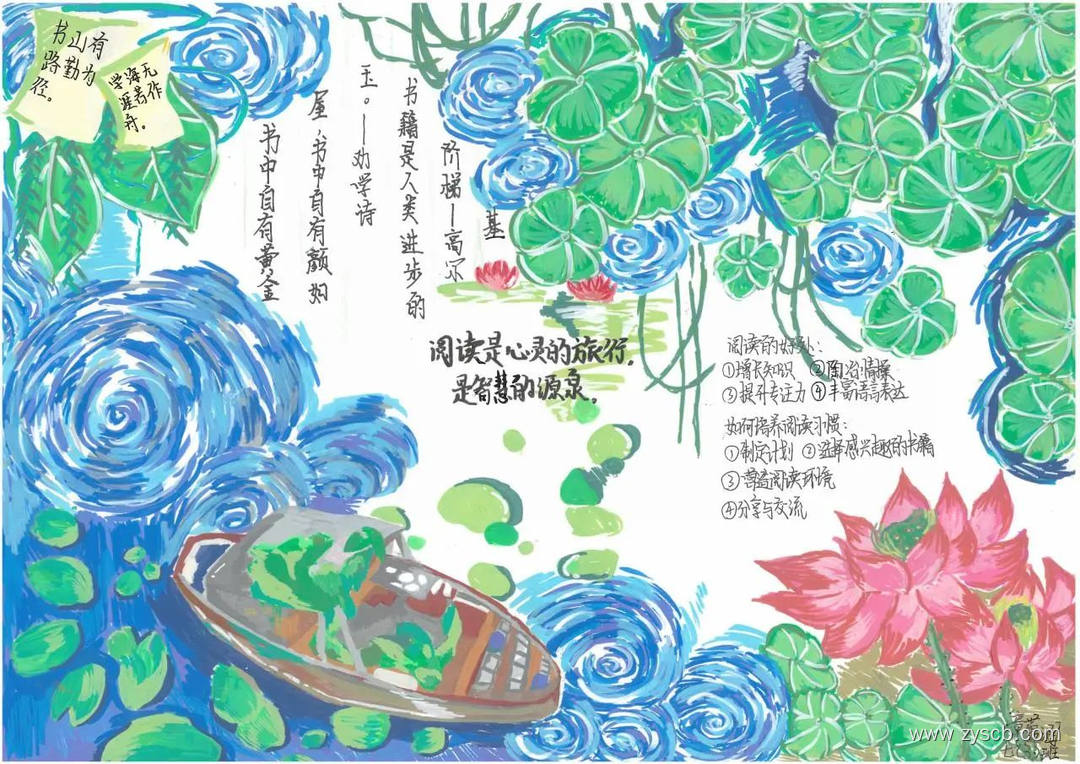 书山有
路勤为
径。
学海无
涯苦作
舟。
书中自有黄金
屋，书中自有颜如
玉。——劝学诗
书籍是人类进步的
阶梯—高尔
基
阅读是心灵的旅行，
是智慧的源泉。
阅读的好处：
①增长知识 ②陶冶情操
③提升专注力 ④丰富语言表达
如何培养阅读习惯：
①制定计划 ②选择感兴趣的书籍
③营造阅读环境
④分享与交流
www.zyscb.com